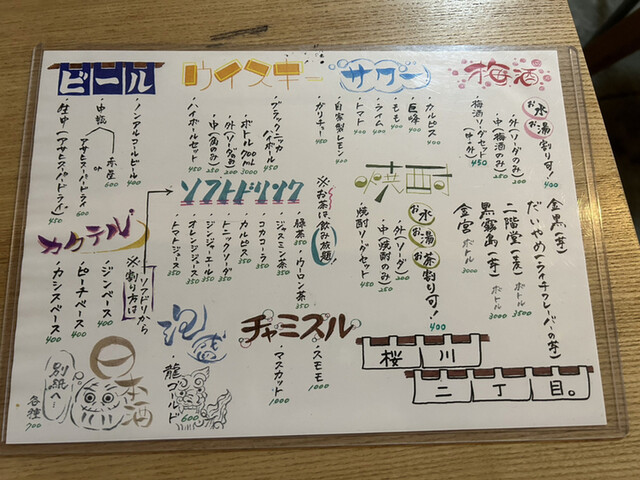 ビール
・生中(アサヒスーパードライ) 450
・中瓶 アサヒスーパードライ or 赤星 600
・ノンアルコールビール 400
ウイスキー
・ハイボールセット 450
・中(角のみ) 250
・外(ソーダのみ) 200
・ボトル700ml 3000
・ブラックニッカハイボール 450
・ガリチュー 450
サワー
・自家製レモン 400
・トマト 400
・ライム 400
・もも 400
・巨峰 400
・カルピス 400
梅酒
お水 お湯 割り可! 400
・外(ソーダのみ) 200
・中(梅酒のみ) 250
・梅酒ソーダセット(中・外) 450
焼酎
お水 お湯 お茶 割り可! 400
・外(ソーダ) 200
・中(焼酎のみ) 250
・焼酎ソーダセット 450
金黒(芋)
だいやめ(ライチフレーバーの芋)
二階堂(麦) ボトル 3500
黒霧島(芋) ボトル 3000
金宮 ボトル 3000
ソフトドリンク
※お茶は飲み放題!
・緑茶 350
・ウーロン茶 350
・ジャスミン茶 350
・コカコーラ 350
・カルピス 350
・トニックソーダ 350
・ジンジャーエール 350
・オレンジジュース 350
・トマトジュース 350
カクテル
※割り方は ソフドリから
・ジンベース 400
・ピーチベース 400
・カシスベース 400
日本酒
別紙へ
各種 700
泡盛
・龍ゴールド 600
チャミスル
・スモモ 1000
・マスカット 1000
桜川
二丁目。